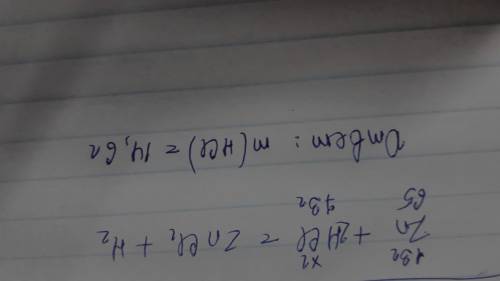 13г xг
Zn + 2HCl = ZnCl₂ + H₂
65 73г
Ответ: m(HCl) = 14,6г